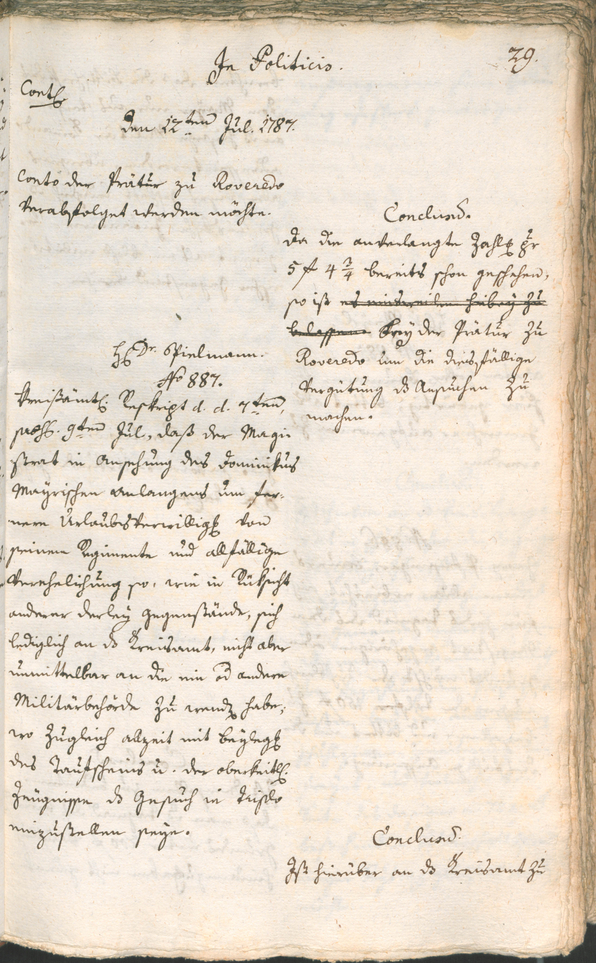 In Politicis.
29.
Cont
den 12ten Jul. 1787.
Conto der Prätur zu Roveredo
verabfolget werden möchte.
Conclusum.
Da die anverlangte Zahlg pr
5 f 4 3/4 bereits schon geschehen,
so ist es einsweilen hiebey zu
belassen bey der Prätur zu
Roveredo um die diesfällige
Vergütung ds Ansuchen zu
machen.
H Dr. Spielmann.
No 887.
Kreisämtl. Reskript d. d. 7ten,
praes. 9ten Jul., daß der Magi
strat in Ansehung des Dominikus
Mayrischen Anlangens um fer-
nere Urlaubsverwilligg von
seinem Regimente und allfällige
Verehelichung so, wie in Rücksicht
anderer derley Gegenstände, sich
lediglich an ds Kreisamt, nicht aber
unmittelbar an die ein od andere
Militärbehörde zu wendn habe,
wo zugleich allzeit mit Beylegg
des Taufscheins u. der obrkeitl.
Zeugnisse ds Gesuch in Triplo
einzustellen seye.
Conclusum
Ist hierüber an ds Kreisamt zu